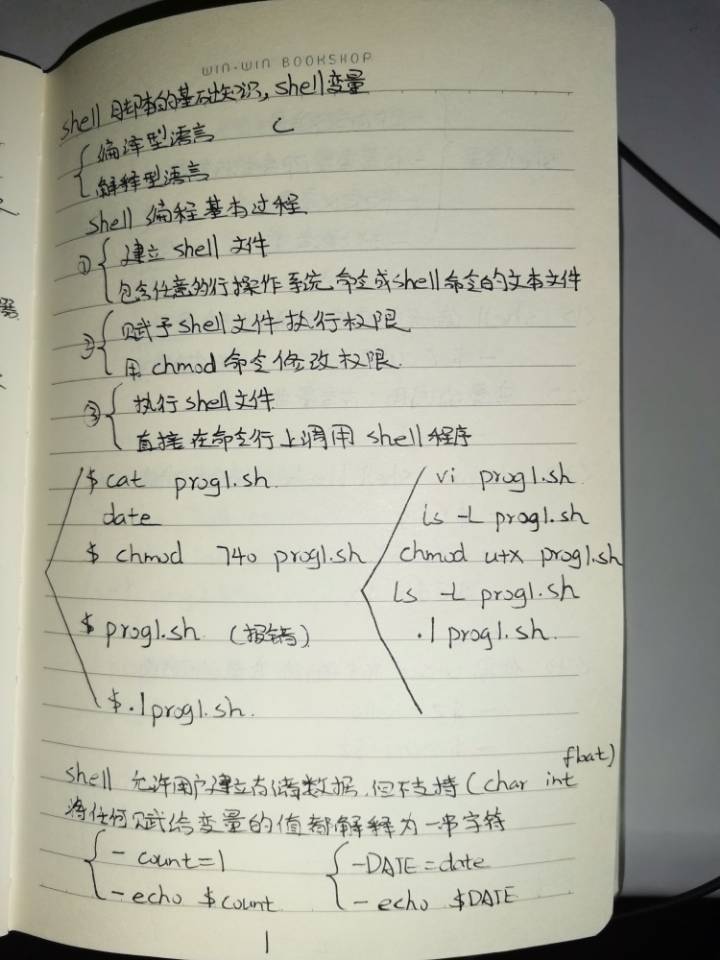 WIN-WIN BOOKSHOP
shell 脚本的基础知识, shell变量
编译型语言 C
解释型语言
shell 编程基本过程
① 建立 shell 文件
包含任意多行操作系统命令或shell命令的文本文件
② 赋予shell文件执行权限
用 chmod 命令修改权限.
③ 执行shell文件
直接在命令行上调用 shell程序
$ cat prog1.sh
date
$ chmod 740 prog1.sh
$ prog1.sh. (报错)
$ ./prog1.sh.
vi prog1.sh
ls -L prog1.sh
chmod u+x prog1.sh
ls -L prog1.sh
./prog1.sh.
shell 允许用户建立存储数据,但不支持(char int float)
将任何赋给变量的值都解释为一串字符
- count=1
- echo $count
- DATE=date
- echo $DATE
1